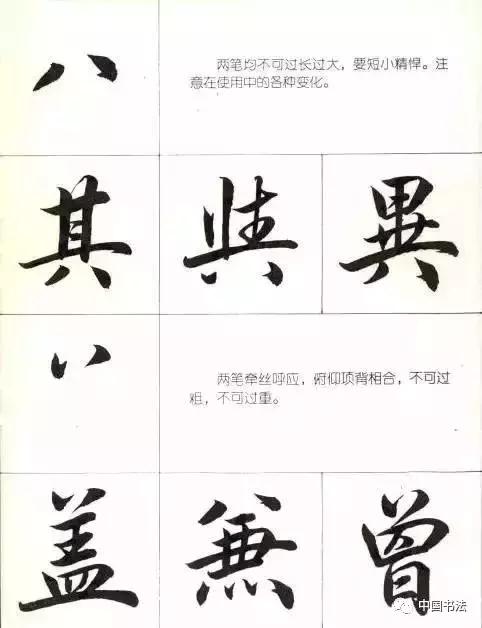 八
两笔均不可过长过大，要短小精悍。注
意在使用中的各种变化。
其 異
丷
两笔牵丝呼应，俯仰项背相合，不可过
粗，不可过重。
盖 兼 曾
中国书法